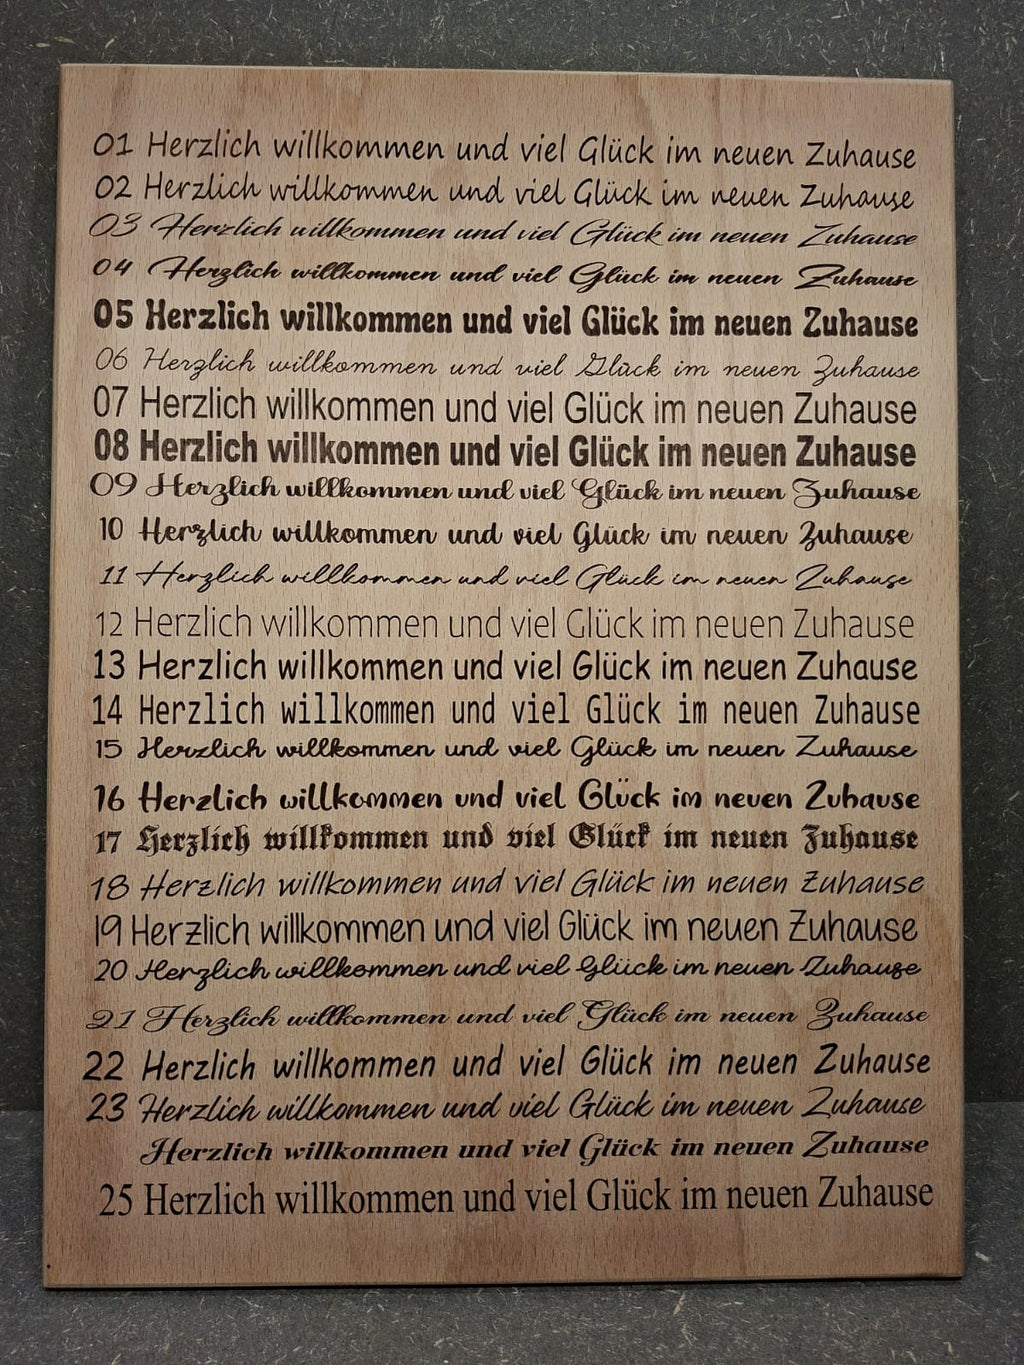 01 Herzlich willkommen und viel Glück im neuen Zuhause
02 Herzlich willkommen und viel Glück im neuen Zuhause
03 Herzlich willkommen und viel Glück im neuen Zuhause
04 Herzlich willkommen und viel Glück im neuen Zuhause
05 Herzlich willkommen und viel Glück im neuen Zuhause
06 Herzlich willkommen und viel Glück im neuen Zuhause
07 Herzlich willkommen und viel Glück im neuen Zuhause
08 Herzlich willkommen und viel Glück im neuen Zuhause
09 Herzlich willkommen und viel Glück im neuen Zuhause
10 Herzlich willkommen und viel Glück im neuen Zuhause
11 Herzlich willkommen und viel Glück im neuen Zuhause
12 Herzlich willkommen und viel Glück im neuen Zuhause
13 Herzlich willkommen und viel Glück im neuen Zuhause
14 Herzlich willkommen und viel Glück im neuen Zuhause
15 Herzlich willkommen und viel Glück im neuen Zuhause
16 Herzlich willkommen und viel Glück im neuen Zuhause
17 Herzlich willkommen und viel Glück im neuen Zuhause
18 Herzlich willkommen und viel Glück im neuen Zuhause
19 Herzlich willkommen und viel Glück im neuen Zuhause
20 Herzlich willkommen und viel Glück im neuen Zuhause
21 Herzlich willkommen und viel Glück im neuen Zuhause
22 Herzlich willkommen und viel Glück im neuen Zuhause
23 Herzlich willkommen und viel Glück im neuen Zuhause
Herzlich willkommen und viel Glück im neuen Zuhause
25 Herzlich willkommen und viel Glück im neuen Zuhause